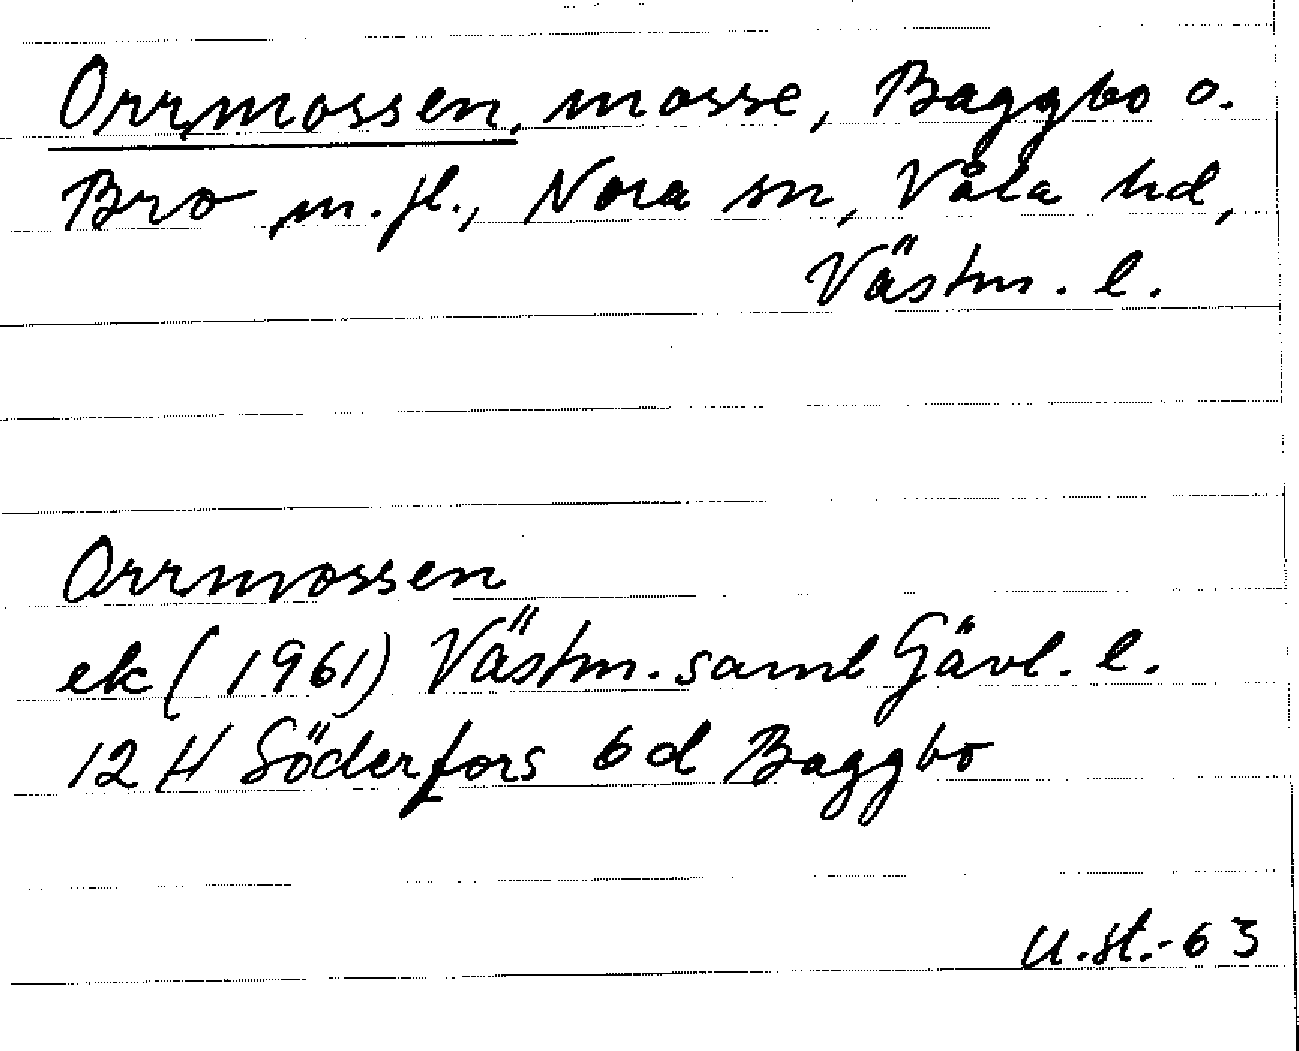 Orrmossen, mosse, Baggbo o.
Bro m.fl., Nora sn, Våla hd,
Västm. l.
Orrmossen
ek (1961) Västm. saml Gävl. l.
12 H Söderfors 6 d Baggbo
U.St.-63